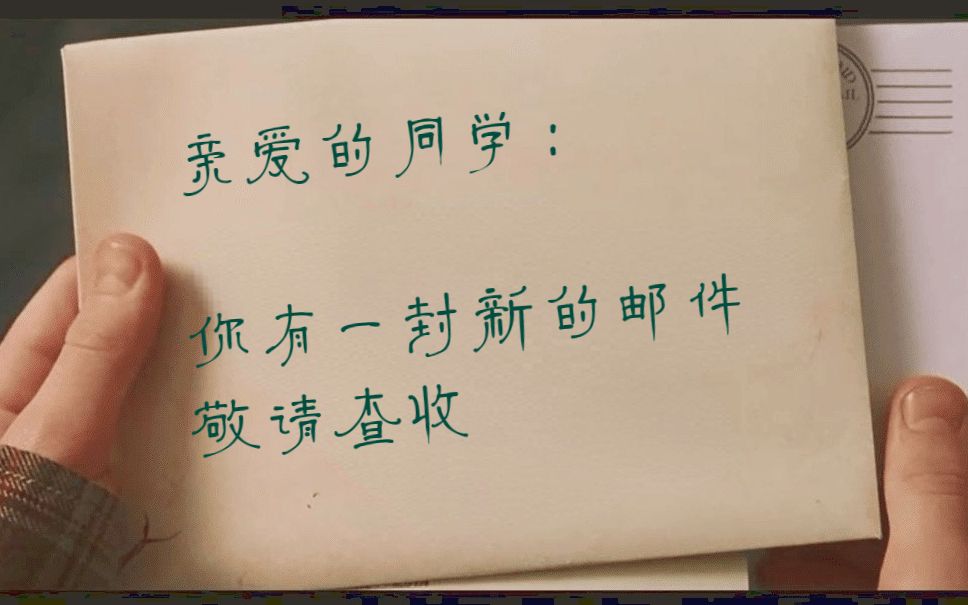 亲爱的同学：
你有一封新的邮件
敬请查收